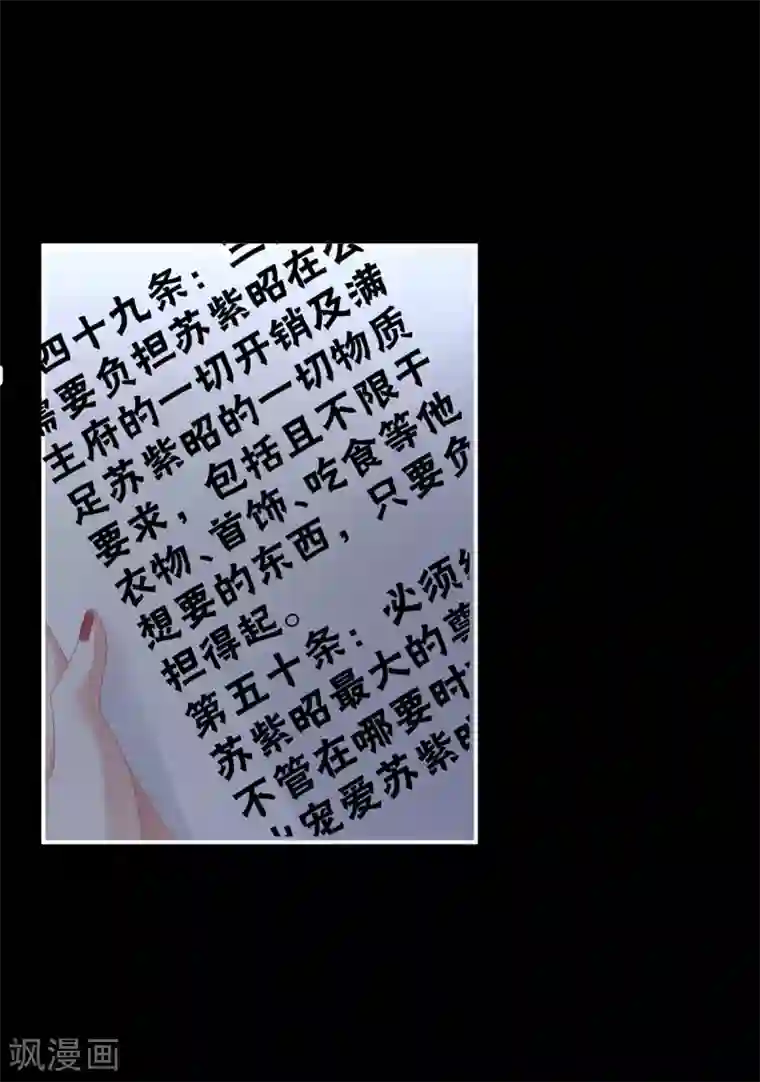 四十九条：三
需要负担苏紫昭在公
主府的一切开销及满
足苏紫昭的一切物质
要求，包括且不限于
衣物、首饰、吃食等他
想要的东西，只要负
担得起。
第五十条：必须给
苏紫昭最大的尊
不管在哪要时
宠爱苏紫昭
飒漫画